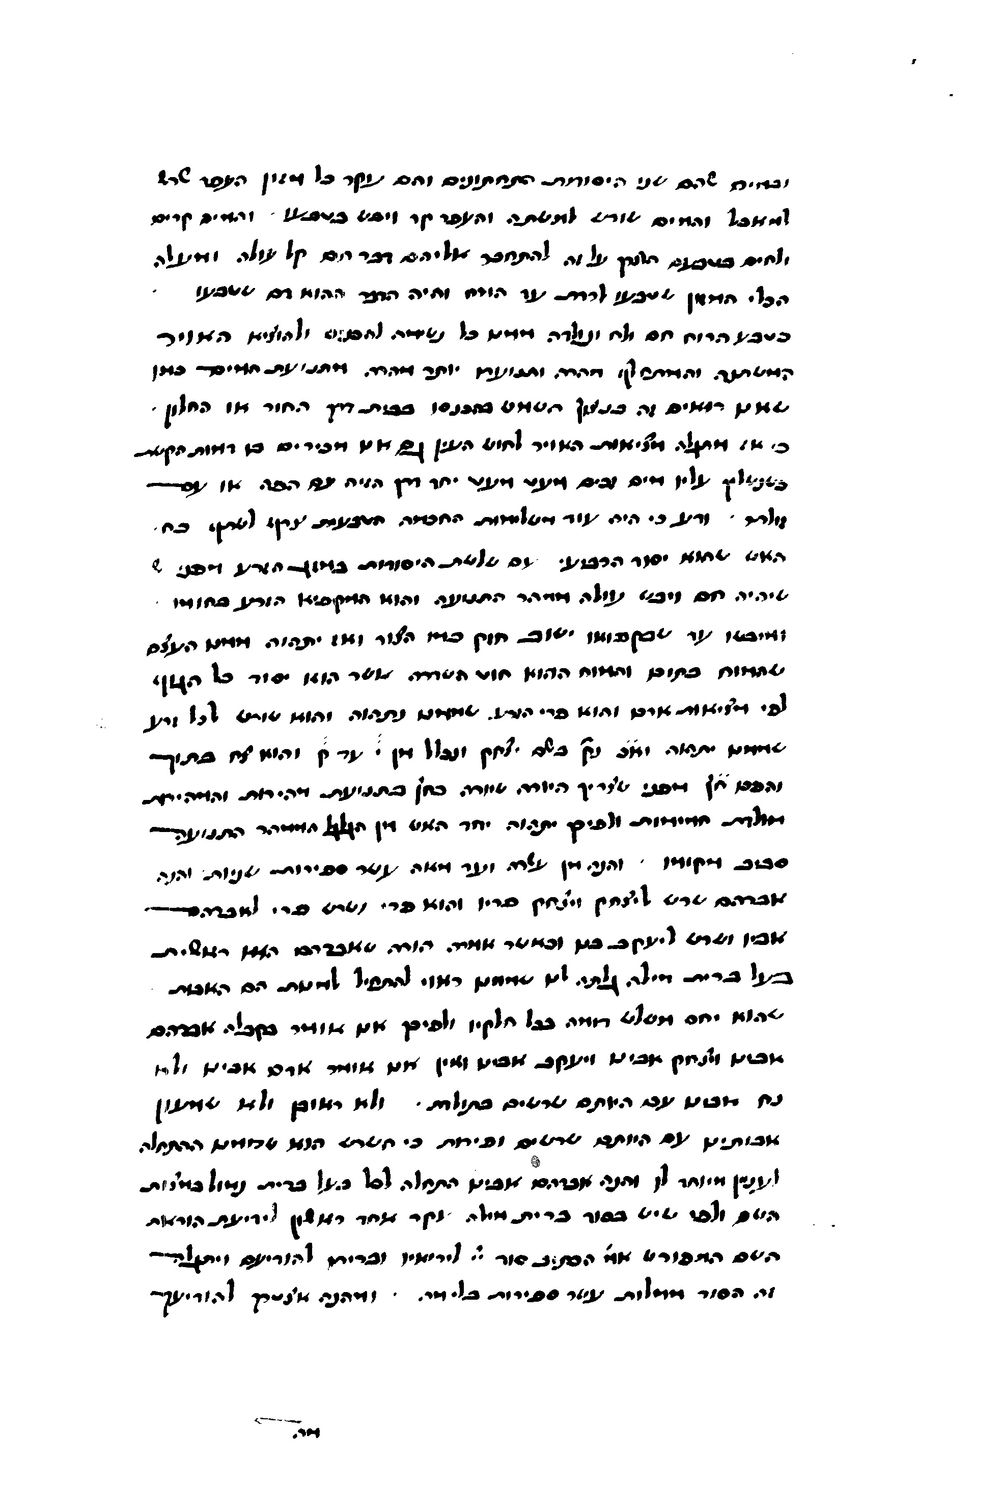 ובמים שהם שני היסודות התחתונים והם עקר כל מזון העפר שרש
למאכל והמים שורש למשתה והעפר קר ויבש בטבעו והמים קרים
ולחים בטבעם חולק על זה להתחבר אליהם דבר חם קל עולה ומעלה
הכלי המזון שטבעו לרדת עד הורח וחיה הדבר ההוא דם שטבעו
כטבע הרוח חם ולח ונולדה ממנו כל נשימה להכניס ולהוציא האויר
המשתנה והמתחלק מהרה ותנועתו יותר מהרה מתנועת המים כמו
שאנו רואים זה בניצוץ השמש בהכנסו בבית דרך החור או החלון
כי אז מתגלה מציאות האויר לחוש העין גם אנו מכירים בו ראות הקשת
כשנשליך עליו מים זכים מעט מעט יחד דרך הזיה עם הפה או עם
זולתו ודע כי היה עוד משלימות החכמה הטבעית לשתף כח
האש שהוא יסוד הרביעי עם שלשת היסודות בגוף הזרע מפני ש
שיהיה חם ויבש עולה ממהר התנועה והוא המקפיא הזרע בחומו
ומיבשו עד שבקפאו ישוב חזק כמו הצור ואז יתהוה ממנו העצם
שהמוח בתוכו והמוח ההוא חוט השדרה אשר הוא יסוד כל הגוף
לפי מציאות אדם והוא פרי הזרע שממנו נתהוה והוא שורש לכל זרע
שממנו יתהוה בשם יצחק ונכלל מן י׳ עד ק׳ והוא בתוך
מפני שצריך היורה שיורה כחץ בתנועת מהירות והמהירות
מולדת חמימות ולפיכך יתהוה יחד האש מן הגלגל הממהר התנועה
סביב מקומו והנה מן עשרה ועד מאה עשר ספירות שניות והנה
אברהם שרש ליצחק ויצחק פריו והוא פרי ושרש פרי לאברהם
אביו ושרש ליעקב בנו וכאשר אמרה תורה שאברהם הוא ראשית
בעל ברית מילה גלתה לנו שממנו ראוי להתחיל לדעת הם האבות
שהוא יחס משלש דומה בכל חלקיו ולפיכך אנו אומר בקבלה אברהם
אבינו ויצחק אבינו ויעקב אבינו ואין אנו אומר אדם אבינו ולא
נח אבינו עם היותם שרשים בתולדת ולא ראובן ולא שמעון
אבותינו עם היותם שרשים ופירות כי השרש הוא שממנו ההתחלה
לענין מיוחד לו והנה אברהם אבינו התחלה לכל בעל ברית נימול במצות
השם ולפי שיש בסוד ברית מילה עקר אחד ראשון לידיעת הוראת
השם המפורש אמר הכתוב סוד יי׳ ליראיו ובריתו להודיעם ויתגלה
זה הסוד ממלות עשר ספירות בלימה ומהנה אצטרך להודיעך
מה